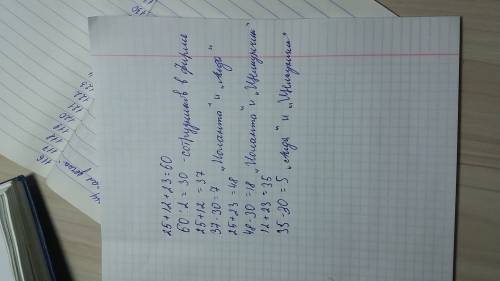 25+12+23=60
60:2=30 - сотрудников в фирме
25+12=37
37-30=7 „Иоланта" и „Аида"
25+23=48
48-30=18 „Иоланта" и „Щелкунчик"
12+23=35
35-30=5 „Аида" и „Щелкунчик"
116
117
118
119
120
121
122